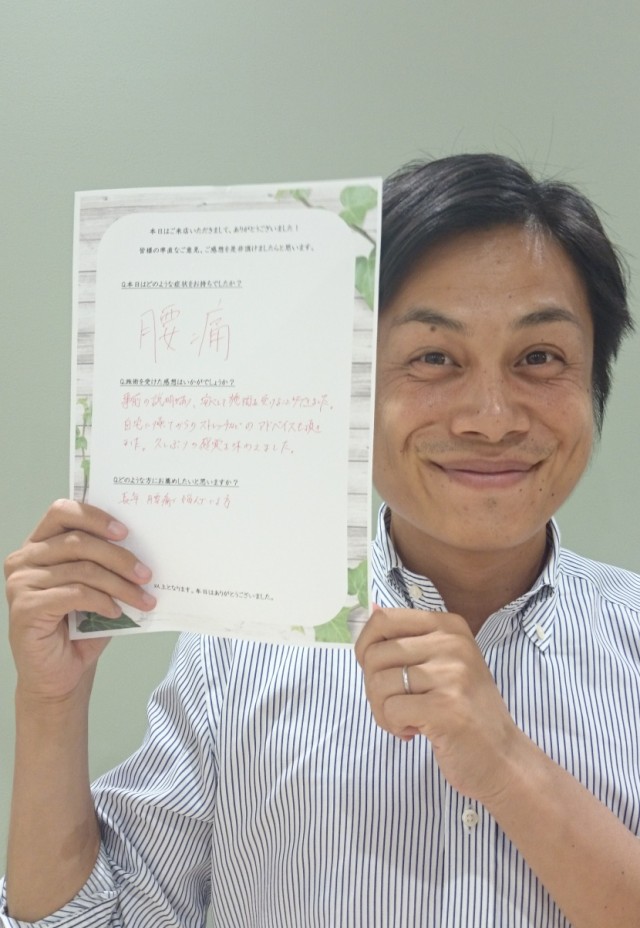 本日はご来店いただきまして、ありがとうございました！
皆様の率直なご意見、ご感想を是非頂けましたらと思います。
Q.本日はどのような症状をお持ちでしたか？
腰痛
Q.施術を受けた感想はいかがでしょうか？
事前の説明があり、安心して施術を受けることができました。
自宅に帰ってからのストレッチなどのアドバイスも頂き
ました。久しぶりの
Qどのような方にお薦めしたいと思いますか？
長年 腰痛に悩んでいる方
以上となります。本日はありがとうございました。